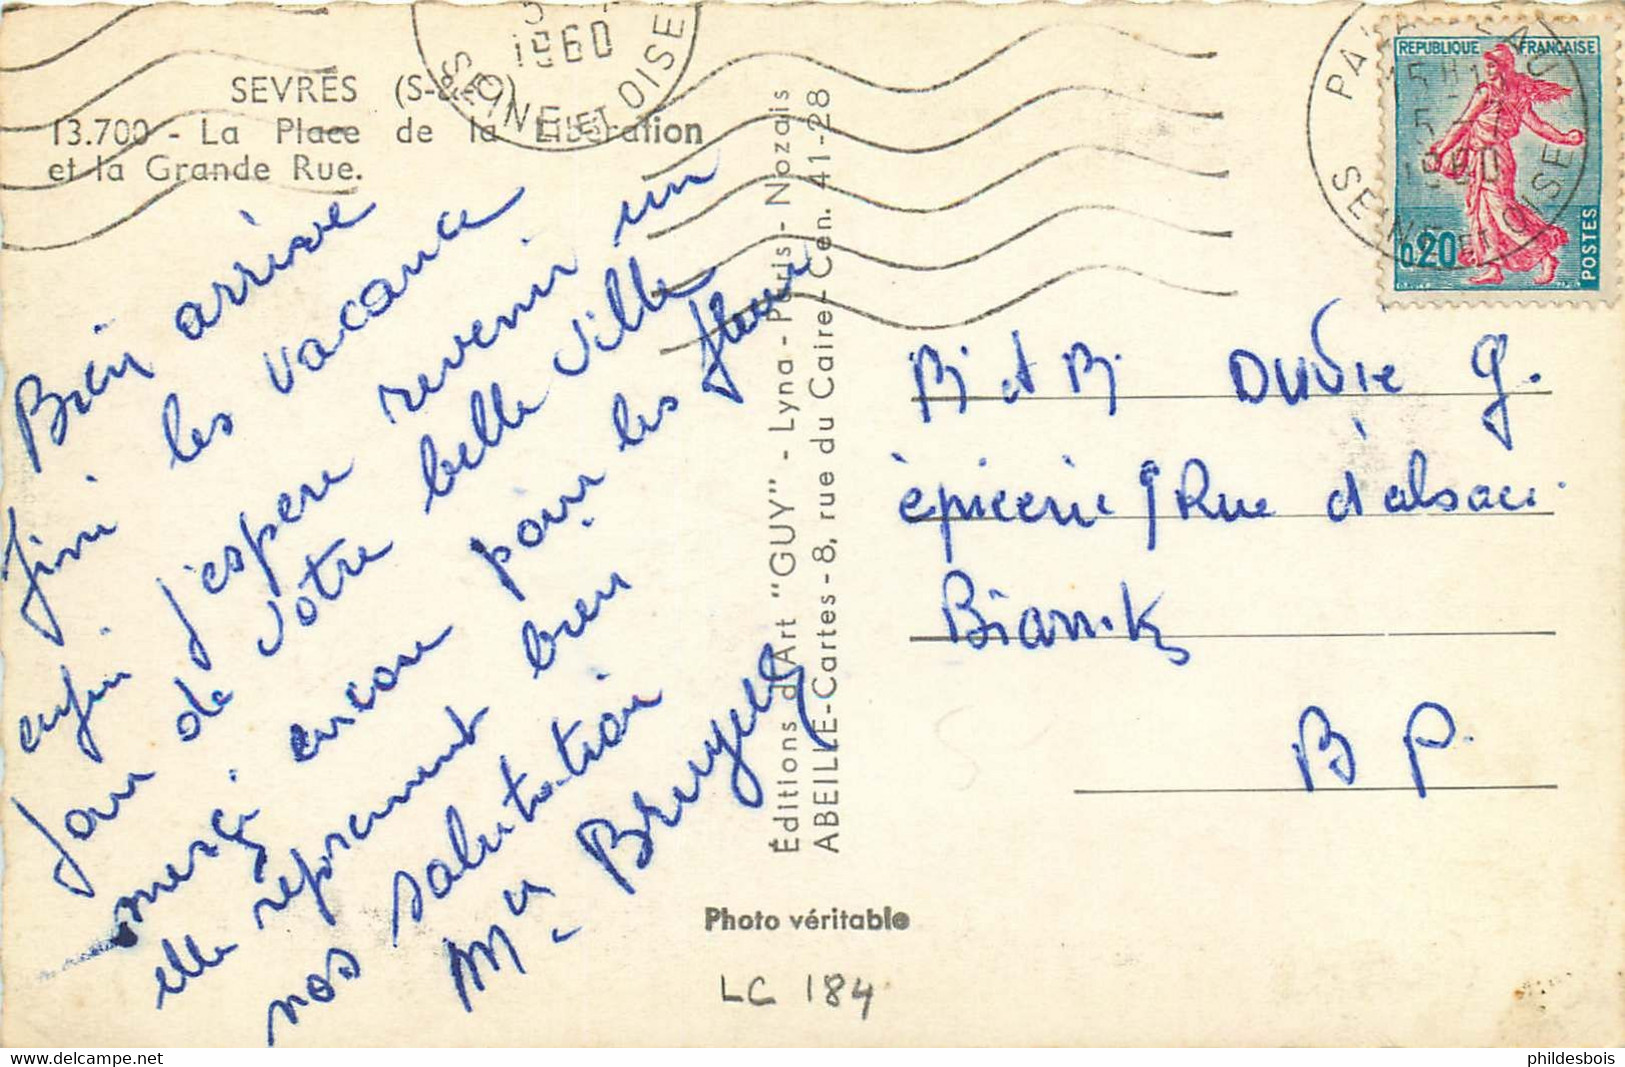 SEVRES (S-&-O)
13.700 - La Place de la Libération
et la Grande Rue.
1960
SEINE ET OISE
Bien arrive
fini les vacance
enfin j'espere revenir un
jour de votre belle ville
merçi encore pour les fleur
elle reprennent bien
nos salutation
Bruyelle
Éditions d'Art "GUY" - Lyna - Paris - Nozais
ABEILLE-Cartes - 8, rue du Caire - Cen. 41-28
REPUBLIQUE FRANÇAISE
0,20
POSTES
15 H
5 - 7
1960
SEINE ET OISE
M et M Duvie G.
èpicerie 9 Rue d'alsace
Biarritz
B P.
Photo véritable
LC 184
phildesbois